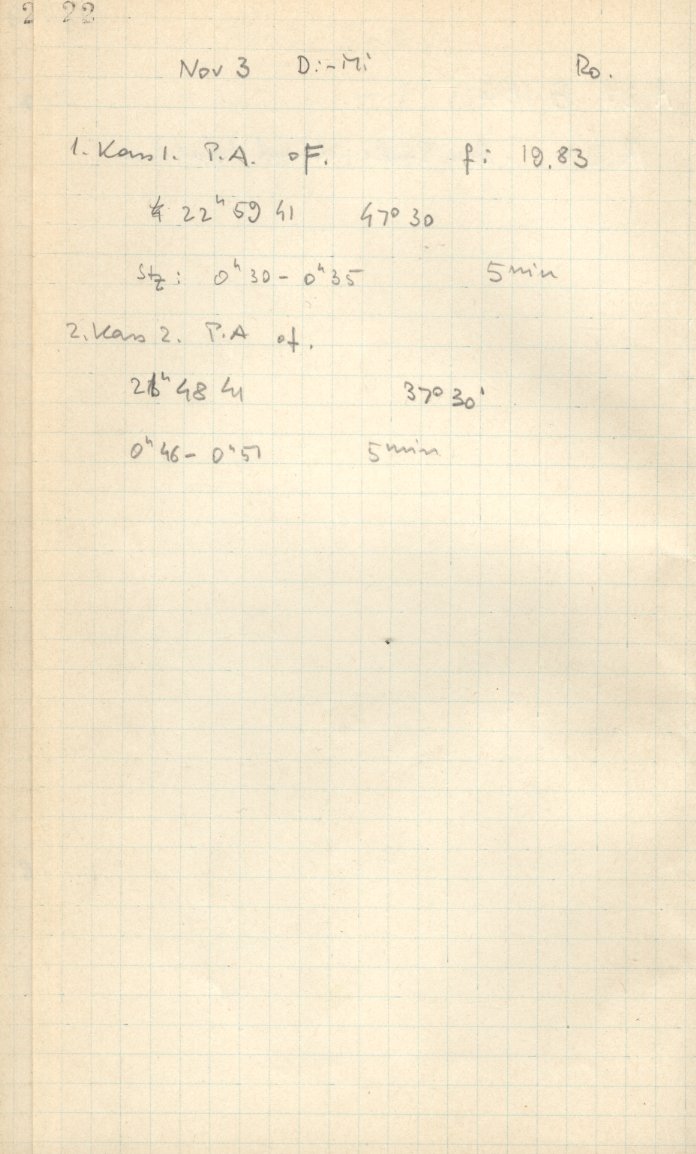 2 22
Nov 3 Di-Mi Ro.
1. Kass 1. P.A. oF. f: 19.83
22ʰ 59 41 47° 30
Stz: 0ʰ 30 - 0ʰ 35 5 min
2. Kass 2. P.A of.
48 41 37° 30'
0ʰ 46 - 0ʰ 51 5 min